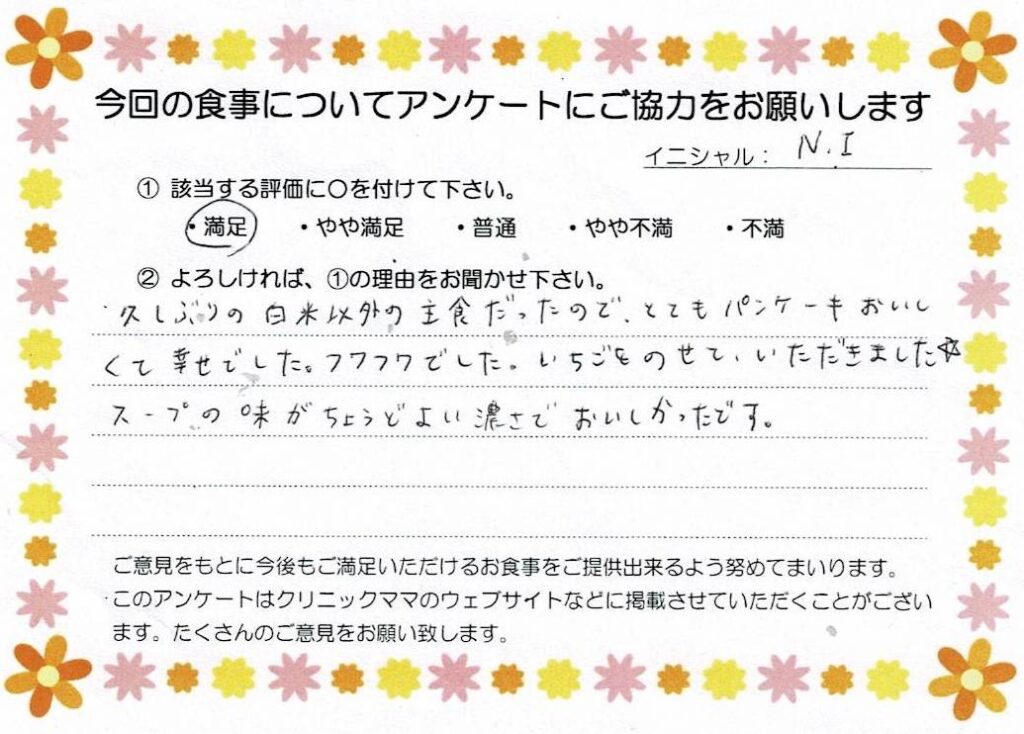 今回の食事についてアンケートにご協力をお願いします
イニシャル： N.I
① 該当する評価に〇を付けて下さい。
・満足 ・やや満足 ・普通 ・やや不満 ・不満
② よろしければ、①の理由をお聞かせ下さい。
久しぶりの白米以外の主食だったので、とてもパンケーキおいし
くて幸せでした。フワフワでした。いちごをのせて、いただきました☆
スープの味がちょうどよい濃さでおいしかったです。
ご意見をもとに今後もご満足いただけるお食事をご提供出来るよう努めてまいります。
このアンケートはクリニックママのウェブサイトなどに掲載させていただくことがござい
ます。たくさんのご意見をお願い致します。